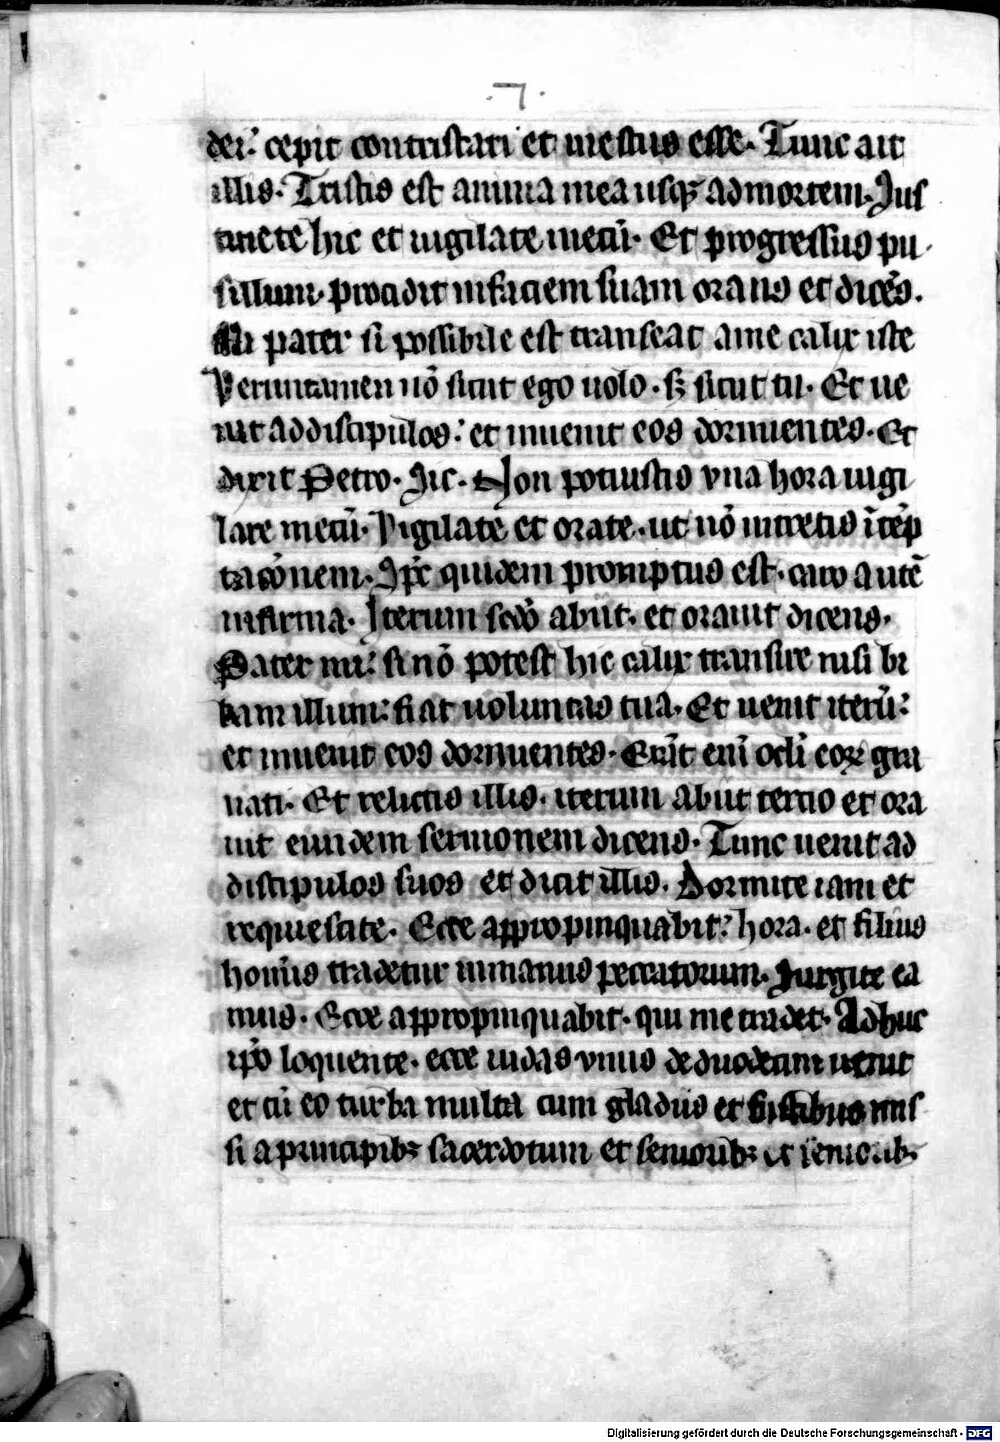 .7.
dei: cepit contristari et mestus esse. Tunc ait
illis. Tristis est anima mea usq; ad mortem. Sus
tinete hic et uigilate mecū. Et progressus pu
sillum. procidit in faciem suam orans et dicēs.
Mi pater si possibile est transeat a me calix iste
Veruntamen nō sicut ego uolo. sꝫ sicut tu. Et ue
nit ad discipulos: et inuenit eos dormientes. Et
dixit Petro. Sic. Non potuistis vna hora uigi
lare mecū. Vigilate et orate. ut nō intretis ī tēp
tacōnem. Sp̄c quidem promptus est. caro autē
infirma. Iterum scd̄o abiit. et orauit dicens.
Pater mi: si nō potest hic calix transire nisi bi
bam illum: fiat uoluntas tua. Et uenit iterū:
et inuenit eos dormientes. Erāt enī oc̄li eoꝝ gra
uati. Et relictis illis. iterum abiit tercio et ora
uit eundem sermonem dicens. Tunc uenit ad
discipulos suos et dicit illis. Dormite iam et
requiescite. Ecce appropinquabit: hora. et filius
homīs tradetur in manus peccatorum. Surgite ea
mus. Ecce appropinquabit. qui me tradet. Adhuc
ip̄o loquente. ecce iudas vnus de duodecim uenit
et cū eo turba multa cum gladiis et fustibus mis
si a principibꝫ sacerdotum et senioribꝫ et senioribꝫ
Digitalisierung gefördert durch die Deutsche Forschungsgemeinschaft - DFG